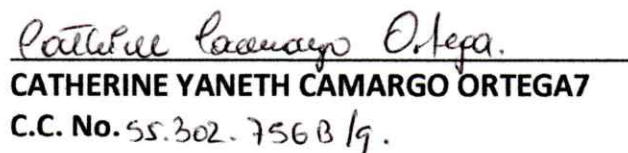 Catherine Camargo Ortega.
CATHERINE YANETH CAMARGO ORTEGA7
C.C. No. 55.302.756 B/q.